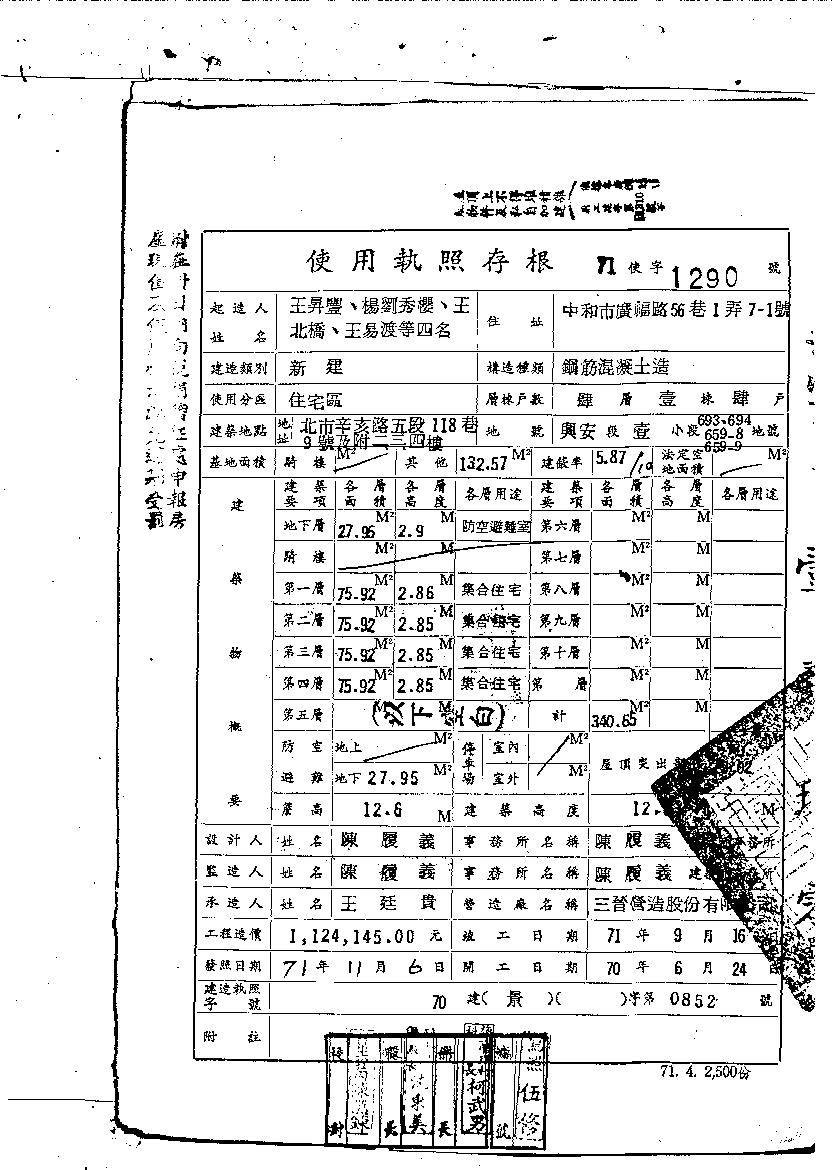 使用執照存根 71 使字 1290 號
起造人姓名 王昇豐、楊劉秀櫻、王北橋、王易渡等四名 住址 中和市廣福路56巷1弄7-1號
建造類別 新建 構造種類 鋼筋混凝土造
使用分區 住宅區 層棟戶數 肆層壹棟肆戶
建築地點 地址 北市辛亥路五段118巷9號及附二三四樓 地號 興安段壹小段 693-694 659-8 659-9 地號
基地面積 騎樓 M² 其他 132.57 M² 建蔽率 5.87/10 法定空地面積 M²
建築物概要
建築要項 各層面積 各層高度 各層用途 建築要項 各層面積 各層高度 各層用途
地下層 27.95 M² 2.9 M 防空避難室 第六層 M² M
騎樓 M² M 第七層 M² M
第一層 75.92 M² 2.86 M 集合住宅 第八層 M² M
第二層 75.92 M² 2.85 M 集合住宅 第九層 M² M
第三層 75.92 M² 2.85 M 集合住宅 第十層 M² M
第四層 75.92 M² 2.85 M 集合住宅 第 層 M² M
第五層 M² M (以下空白) 計 340.65 M² M
防空 地上 M² 停車場 室內 M² 屋頂突出
避難 地下 27.95 M² 室外 M²
簷高 12.6 M 建築高度 12. M
設計人 姓名 陳履義 事務所名稱 陳履義 事務所
監造人 姓名 陳履義 事務所名稱 陳履義建
承造人 姓名 王廷貴 營造廠名稱 三晉營造股份有限公司
工程造價 1,124,145.00 元 竣工日期 71年9月16日
發照日期 71年11月6日 開工日期 70年6月24日
建造執照字號 70建(景)( )字第0852號
附註
71. 4. 2,500份
校對 股長 科長 柯武男 號 伍修